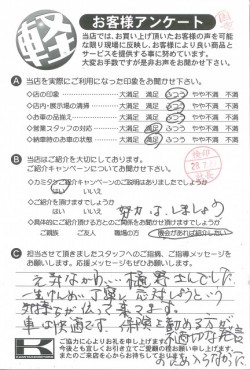 軽
お客様アンケート
当店では、お買い上げ頂いたお客様の声を可能
な限り現場に反映し、お客様により良い商品と
サービスを提供する事に努めています。
大変お手数ですが是非お声をお聞かせ下さい。
A 当店を実際にご利用になった印象をお聞かせ下さい。
◇店の印象 大満足 満足 ふつう やや不満 不満
◇店内・展示場の清掃 大満足 満足 ふつう やや不満 不満
◇お車の品揃え 大満足 満足 ふつう やや不満 不満
◇営業スタッフの対応 大満足 満足 ふつう やや不満 不満
◇納車時の状態 大満足 満足 ふつう やや不満 不満
B 当店はご紹介を大切にしております。
ご紹介キャンペーンについてお聞かせ下さい。
◇カミタケご紹介キャンペーンのご説明はありましたでしょうか
はい いいえ
◇ご紹介を頂けますでしょうか
はい いいえ
◇具体的にご紹介頂ける方との関係をお聞かせ頂けますでしょうか
ご親族 ご友人 職場の方 機会があれば紹介したい
C 担当させて頂きましたスタッフへのご指摘、ご指導メッセージを
お願いします。応援メッセージもぜひお願いします。
車は快適です。
K
ご協力に心よりお礼を申し上げます。
今後とも宜しくお引き立てご愛顧の程お願い申し上げます。
またのご来店を心からお待ちしております。